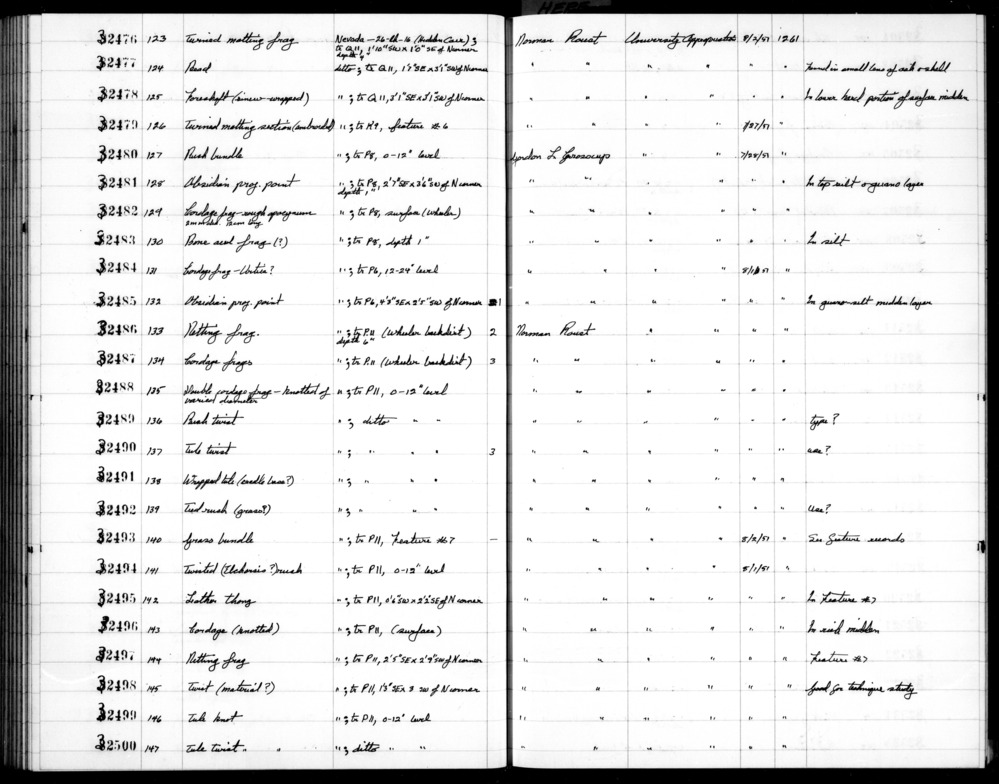 HERE
32476 123 Twined matting frag Nevada-26-Ch-16 (Hidden Cave); Norman Roust University Appropriated 8/2/51 1261
tr Q11, 1'10"SW x 1'0" SE of N corner
depth 4"
32477 124 Bead ditto; tr Q11, 1'7"SE x 3'1"SW of N corner " " " " " " Found in small lens of ash & shell
32478 125 Foreshaft (sinew-wrapped) "; tr Q11, 3'1"SE x 3'1"SW of N corner " " " " " " In lower hard portion of surface midden
32479 126 Twined matting section (embroided) "; tr R9, feature #6 " " " " 7/27/51 "
32480 127 Rush bundle "; tr P8, 0-12" level Gordon L. Grosscup " " 7/28/51 "
32481 128 Obsidian proj. point "; tr P8, 2'7"SE x 3'6"SW of N corner " " " " " " In top silt & guano layer
depth 1"
32482 129 Cordage frag-rough apocynum "; tr P8, surface (Wheeler) " " " " " "
2mm dia. 12cm long
32483 130 Bone awl frag (?) "; tr P8, depth 1" " " " " " " In silt
32484 131 Cordage frag-Urtica? "; tr P6, 12-24" level " " " " 8/1/51 "
32485 132 Obsidian proj. point "; tr P6, 4'3"SE x 2'5"SW of N corner 1 " " " " " " In guano-silt midden layer
32486 133 Netting frag. "; tr P11 (Wheeler backdirt) 2 Norman Roust " " " "
depth 6"
32487 134 Cordage frags "; tr P11 (Wheeler backdirt) 3 " " " " " "
32488 135 Double cordage frag-knotted of "; tr P11, 0-12" level " " " " " "
varied diameter
32489 136 Rush twist "; ditto " " " " " " " " type?
32490 137 Tule twist "; " " " 3 " " " " " " use?
32491 138 Wrapped tule (cradle base?) "; " " " " " " " " "
32492 139 Tied rush (grass?) "; " " " " " " " " " use?
32493 140 Grass bundle "; tr P11, Feature #7 — " " " " 8/2/51 " See feature records
32494 141 Twisted (Elcharis?) rush "; tr P11, 0-12" level " " " " 8/1/51 "
32495 142 Leather thong "; tr P11, 0'6"SW x 2'3"SE of N corner " " " " " " In Feature #7
32496 143 Cordage (knotted) "; tr P11, (surface) " " " " " " In rich midden
32497 144 Netting frag "; tr P11, 2'5"SE x 2'9"SW of N corner " " " " " " Feature #7
32498 145 Twist (material?) "; tr P11, 1'3"SE x 3 SW of N corner " " " " " " good for technique study
32499 146 Tule knot "; tr P11, 0-12" level " " " " " "
32500 147 Tule twist " " "; ditto " " " " " " " "